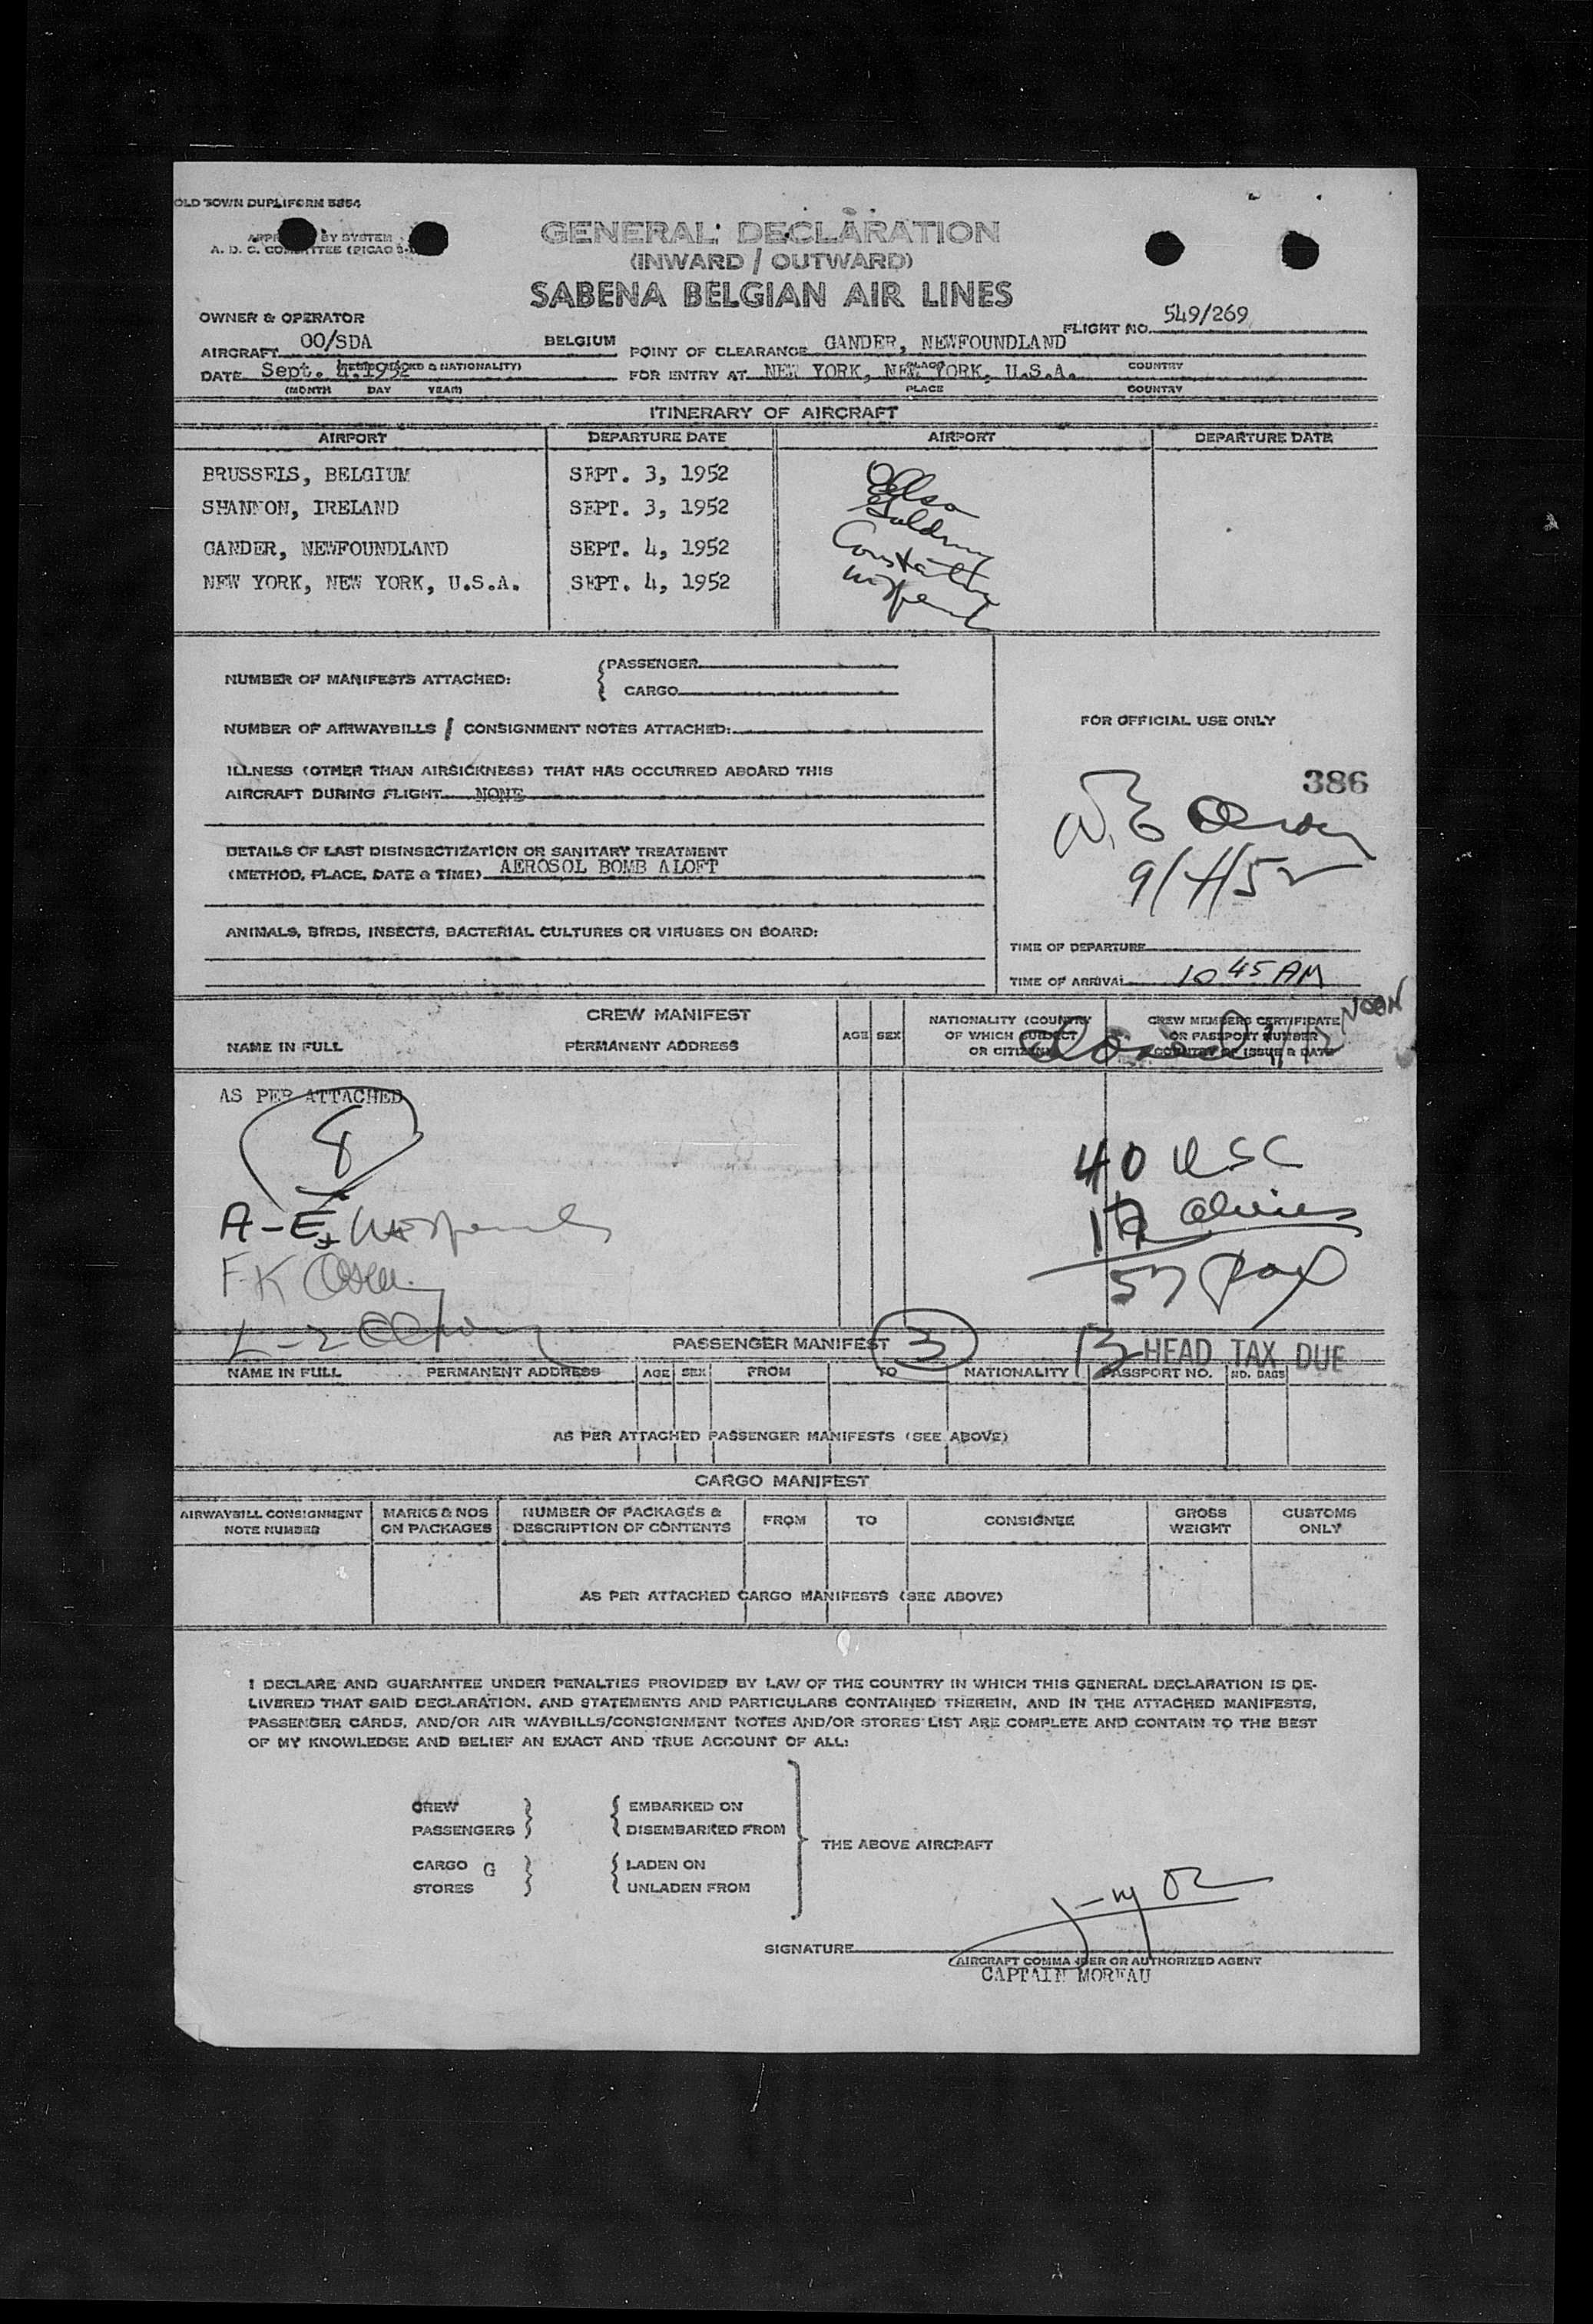 OLD TOWN DUPLIFORM 5854
BY SYSTEM
A. D. C. COMMITTEE (PICAO
GENERAL DECLARATION
(INWARD / OUTWARD)
SABENA BELGIAN AIR LINES
OWNER & OPERATOR
FLIGHT NO. 549/269
AIRCRAFT OO/SDA BELGIUM POINT OF CLEARANCE GANDER, NEWFOUNDLAND
& NATIONALITY) PLACE COUNTRY
DATE Sept. 4.1952 FOR ENTRY AT NEW YORK, NEW YORK, U.S.A.
(MONTH DAY YEAR) PLACE COUNTRY
ITINERARY OF AIRCRAFT
AIRPORT DEPARTURE DATE AIRPORT DEPARTURE DATE
BRUSSELS, BELGIUM SEPT. 3, 1952
SHANNON, IRELAND SEPT. 3, 1952
GANDER, NEWFOUNDLAND SEPT. 4, 1952
NEW YORK, NEW YORK, U.S.A. SEPT. 4, 1952
NUMBER OF MANIFESTS ATTACHED: PASSENGER
CARGO
NUMBER OF AIRWAYBILLS / CONSIGNMENT NOTES ATTACHED:
FOR OFFICIAL USE ONLY
ILLNESS (OTHER THAN AIRSICKNESS) THAT HAS OCCURRED ABOARD THIS
AIRCRAFT DURING FLIGHT NONE
386
9/4/52
DETAILS OF LAST DISINSECTIZATION OR SANITARY TREATMENT
(METHOD, PLACE, DATE & TIME) AEROSOL BOMB ALOFT
ANIMALS, BIRDS, INSECTS, BACTERIAL CULTURES OR VIRUSES ON BOARD:
TIME OF DEPARTURE
TIME OF ARRIVAL 10 45 AM
CREW MANIFEST
NAME IN FULL PERMANENT ADDRESS AGE SEX NATIONALITY (COUNTRY OF WHICH SUBJECT OR CITIZEN) CREW MEMBERS CERTIFICATE OR PASSPORT NUMBER COUNTRY OF ISSUE & DATE
NOON
AS PER ATTACHED
8
40 USC
17 aliens
57 pax
A-E
F-K
L-Z
PASSENGER MANIFEST 3 13 HEAD TAX DUE
NAME IN FULL PERMANENT ADDRESS AGE SEX FROM TO NATIONALITY PASSPORT NO. NO. BAGS
AS PER ATTACHED PASSENGER MANIFESTS (SEE ABOVE)
CARGO MANIFEST
AIRWAYBILL CONSIGNMENT NOTE NUMBER MARKS & NOS ON PACKAGES NUMBER OF PACKAGES & DESCRIPTION OF CONTENTS FROM TO CONSIGNEE GROSS WEIGHT CUSTOMS ONLY
AS PER ATTACHED CARGO MANIFESTS (SEE ABOVE)
I DECLARE AND GUARANTEE UNDER PENALTIES PROVIDED BY LAW OF THE COUNTRY IN WHICH THIS GENERAL DECLARATION IS DE-
LIVERED THAT SAID DECLARATION, AND STATEMENTS AND PARTICULARS CONTAINED THEREIN, AND IN THE ATTACHED MANIFESTS,
PASSENGER CARDS, AND/OR AIR WAYBILLS/CONSIGNMENT NOTES AND/OR STORES LIST ARE COMPLETE AND CONTAIN TO THE BEST
OF MY KNOWLEDGE AND BELIEF AN EXACT AND TRUE ACCOUNT OF ALL:
CREW EMBARKED ON
PASSENGERS DISEMBARKED FROM
THE ABOVE AIRCRAFT
CARGO G LADEN ON
STORES UNLADEN FROM
SIGNATURE
AIRCRAFT COMMANDER OR AUTHORIZED AGENT
CAPTAIN MOREAU